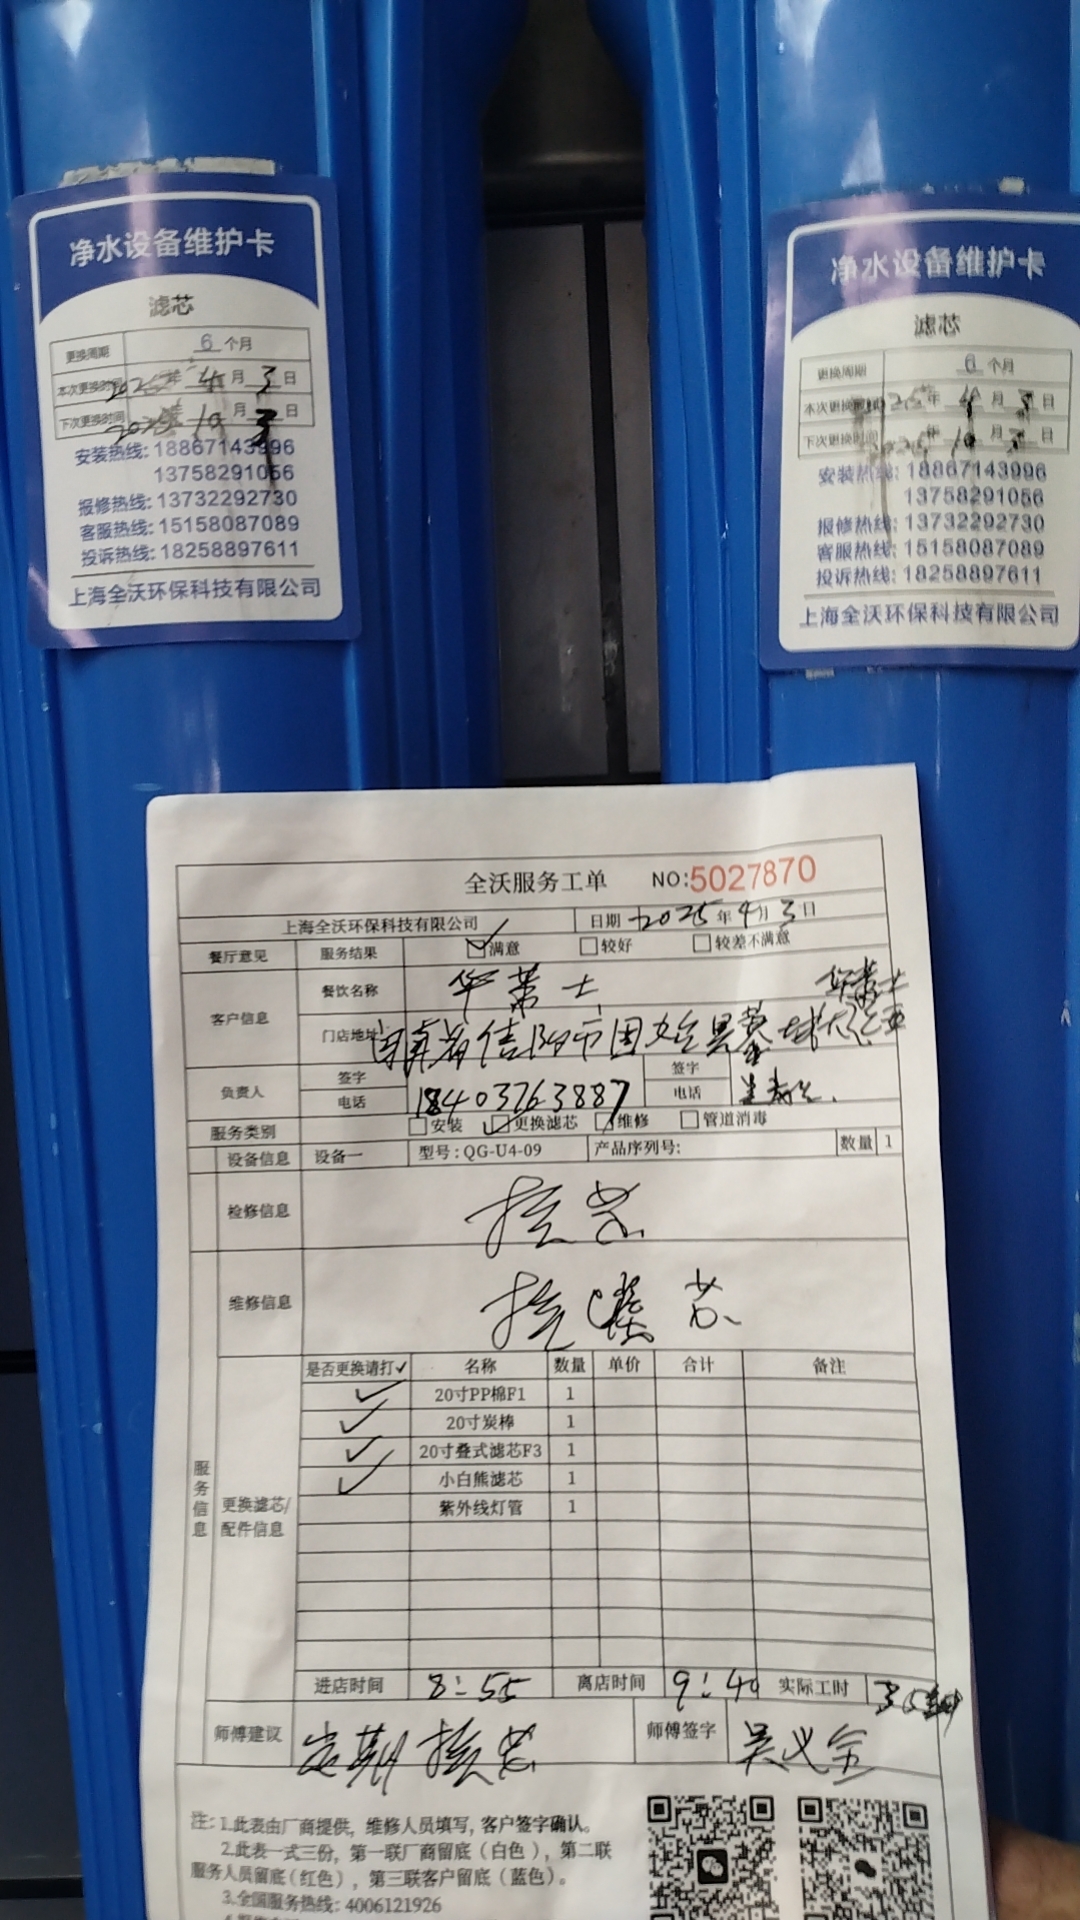 净水设备维护卡
滤芯
更换周期 6 个月
本次更换时间 2025年 4 月 3 日
下次更换时间 2025年 10 月 3 日
安装热线: 18867143996
13758291056
报修热线: 13732292730
客服热线: 15158087089
投诉热线: 18258897611
上海全沃环保科技有限公司
净水设备维护卡
滤芯
更换周期 6 个月
本次更换时间 2025年 4 月 3 日
下次更换时间 2025年 10 月 3 日
安装热线: 18867143996
13758291056
报修热线: 13732292730
客服热线: 15158087089
投诉热线: 18258897611
上海全沃环保科技有限公司
全沃服务工单 NO:5027870
上海全沃环保科技有限公司 日期 2025 年 4 月 3 日
餐厅意见 服务结果 满意 较好 较差不满意
客户信息 餐饮名称 华莱士 华莱士
门店地址 河南省信阳市固始县蓼城大道
负责人 签字 签字
电话 18403763887 电话
服务类别 安装 更换滤芯 维修 管道消毒
设备信息 设备一 型号: QG-U4-09 产品序列号: 数量 1
检修信息 换芯
维修信息 换滤芯
服务信息
更换滤芯/配件信息
是否更换请打✓ 名称 数量 单价 合计 备注
✓ 20寸PP棉F1 1
✓ 20寸炭棒 1
✓ 20寸叠式滤芯F3 1
✓ 小白熊滤芯 1
紫外线灯管 1
进店时间 8:55 离店时间 9:40 实际工时
师傅建议 定期换芯 师傅签字 吴义全
注: 1.此表由厂商提供, 维修人员填写, 客户签字确认。
2.此表一式三份, 第一联厂商留底 (白色), 第二联
服务人员留底 (红色), 第三联客户留底 (蓝色)。
3.全国服务热线: 4006121926